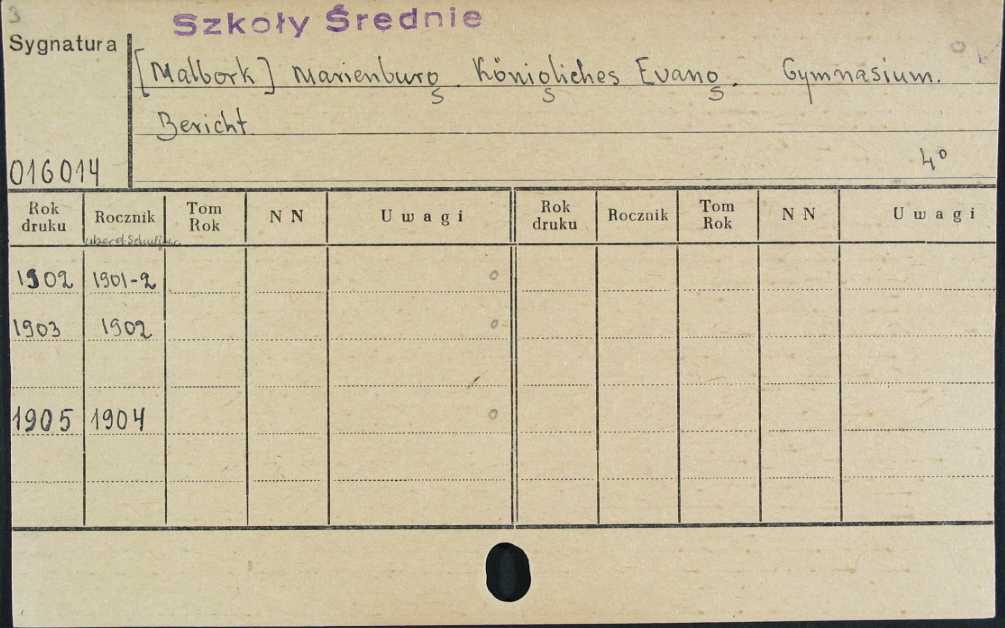 3
Szkoły Średnie
Sygnatura
[Malbork] Marienburg. Königliches Evang. Gymnasium.
Bericht.
016014
4°
Rok druku Rocznik Tom Rok N N Uwagi Rok druku Rocznik Tom Rok N N Uwagi
1902 1901-2
1903 1902
1905 1904